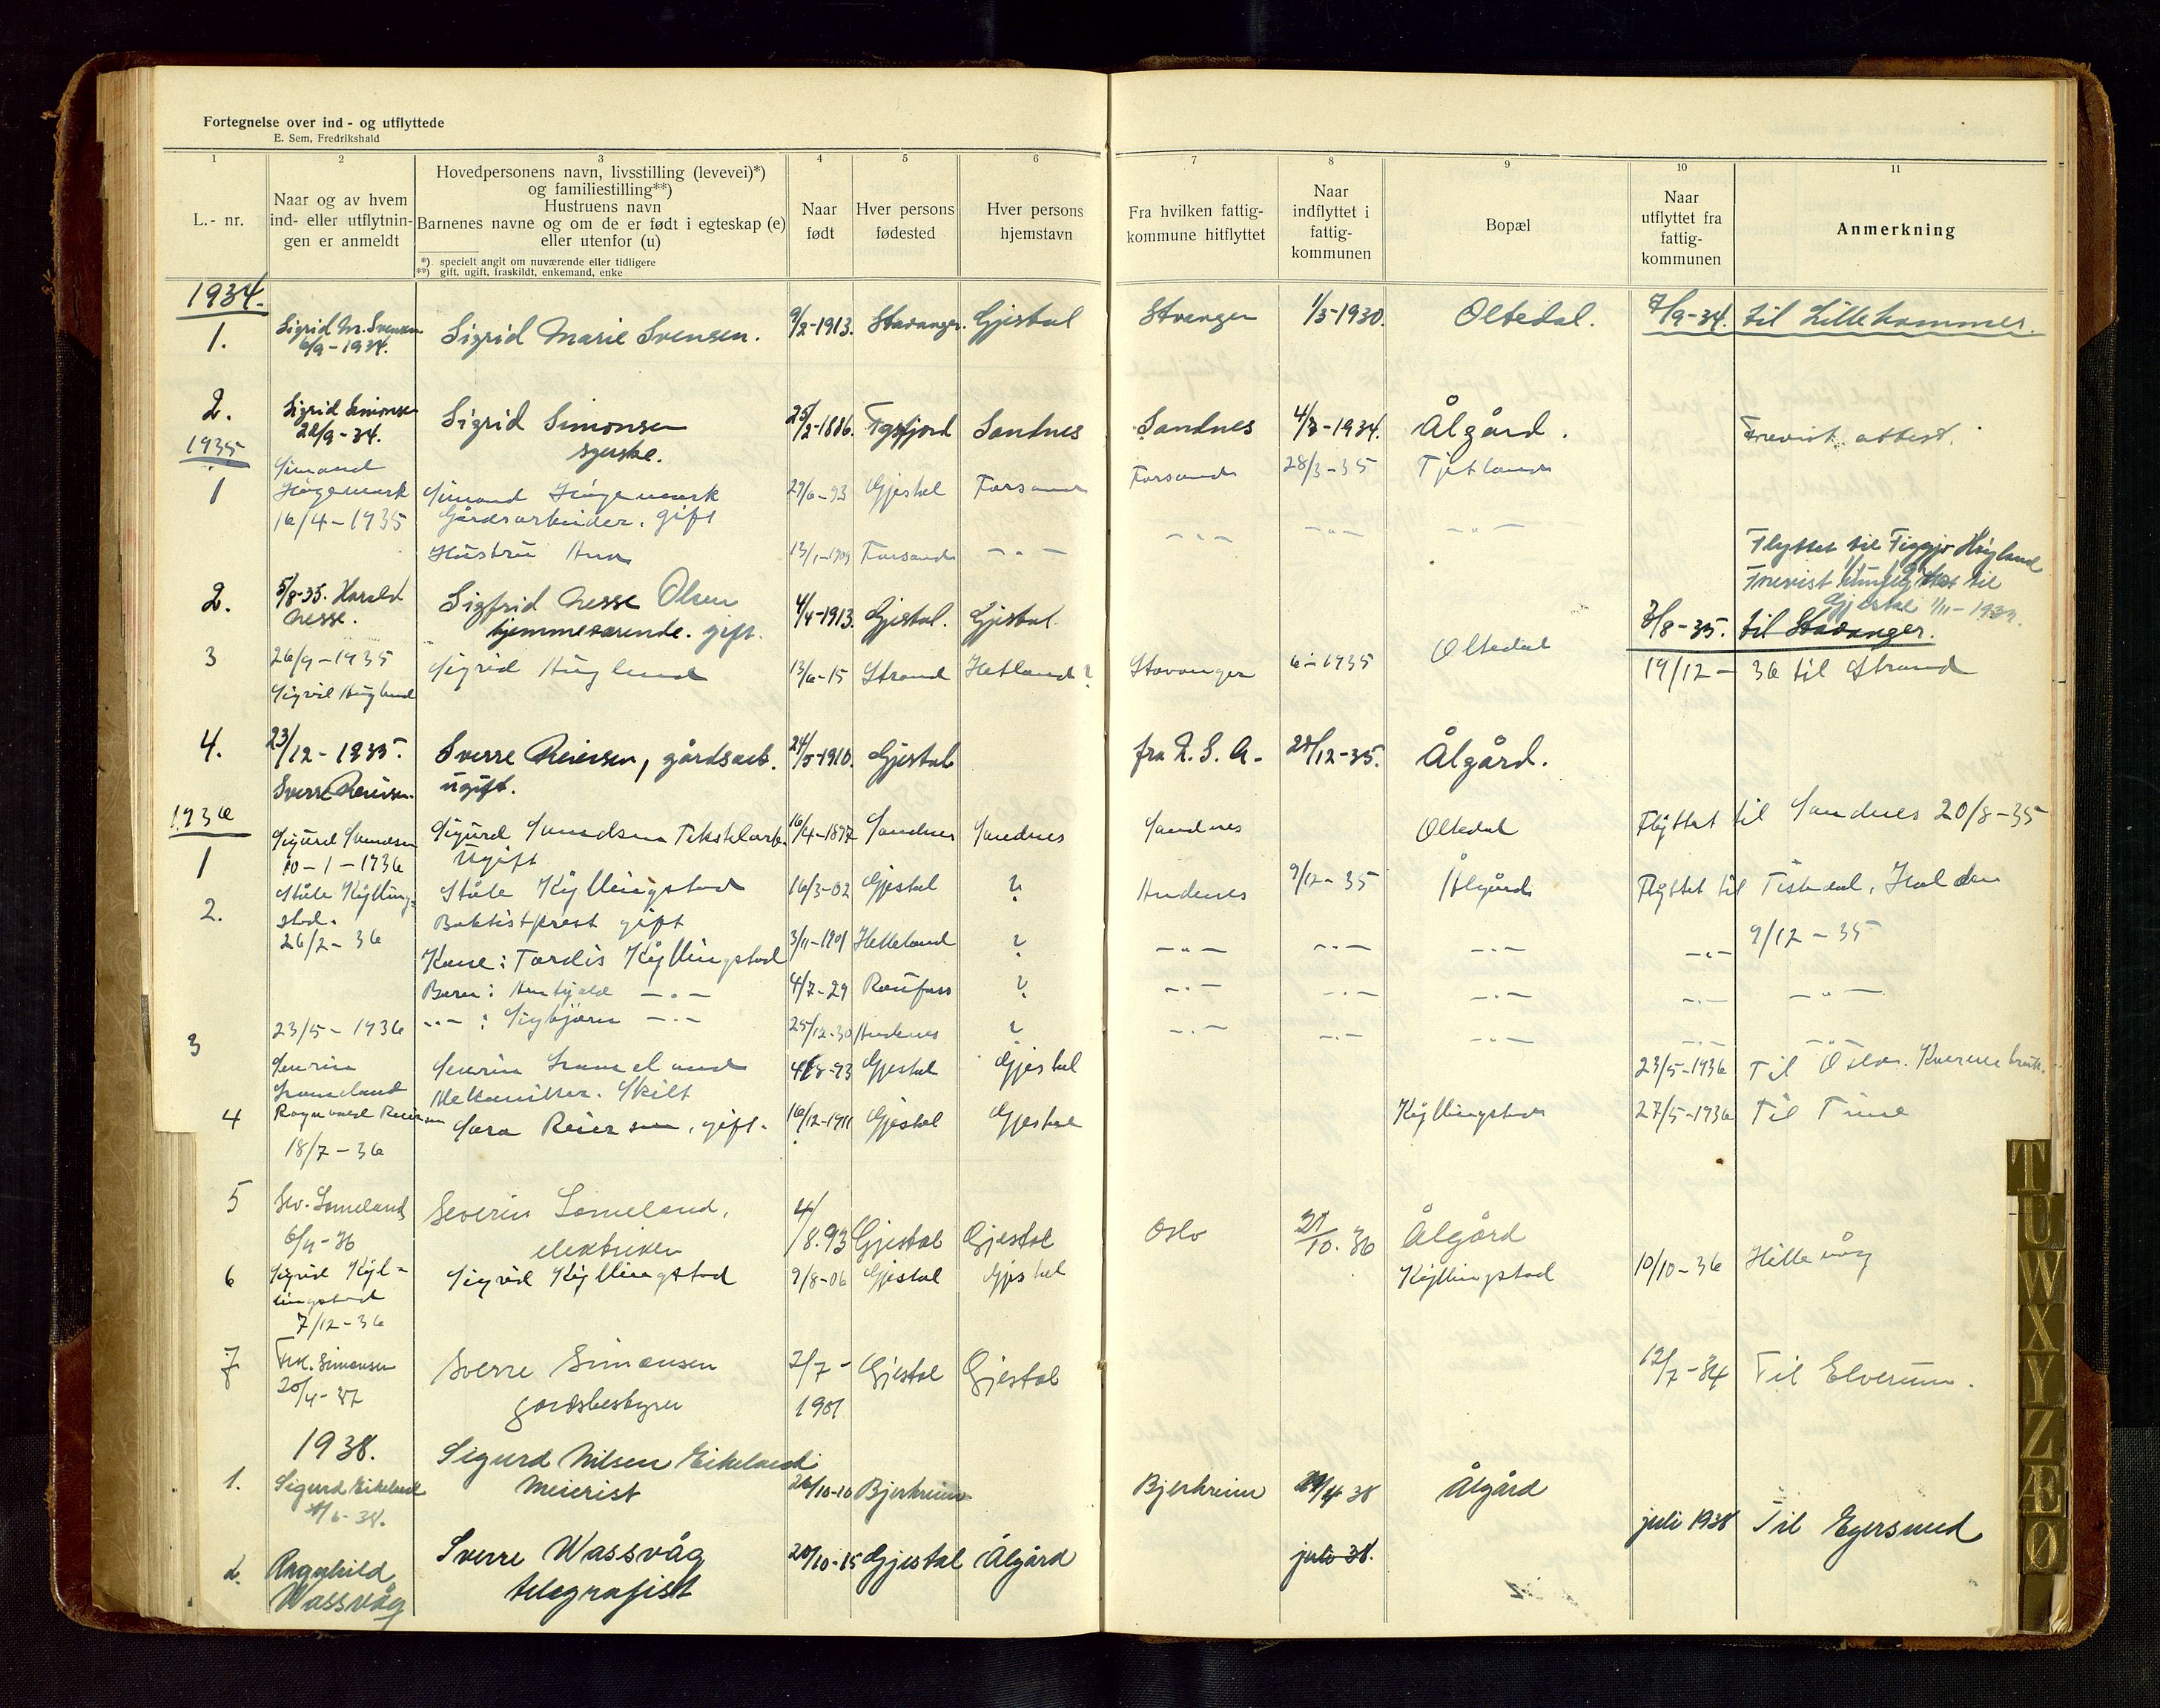 Fortegnelse over ind - og utflyttede
E. Sem, Fredrikshald
1 2 3 4 5 6 7 8 9 10 11
L.- nr.
Naar og av hvem
ind- eller utflytnin-
gen er anmeldt
Hovedpersonens navn, livsstilling (levevei)*)
og familiestilling**)
Hustruens navn
Barnenes navne og om de er født i egteskap (e)
eller utenfor (u)
*) specielt angit om nuværende eller tidligere
**) gift, ugift, fraskildt, enkemand, enke
Naar
født
Hver persons
fødested
Hver persons
hjemstavn
Fra hvilken fattig-
kommune hitflyttet
Naar
indflyttet i
fattig-
kommunen
Bopæl
Naar
utflyttet fra
fattig-
kommunen
Anmerkning
1934.
1. Sigrid M. Svensen Sigrid Marie Svensen. 9/2-1913. Stavanger. Gjestal Stvanger 1/5-1930. Oltedal. 7/9-34. til Lillehammer.
6/9-1934.
2. Sigrid Simonsen Sigrid Simonsen 25/2-1886. Sandnes Sandnes 4/3-1934. Ålgård. Frevist attest.
22/9-34. syerske.
1935
1 Simond Høgemark Simond Høgemark 29/6-93 Gjestal Forsand Forsand 28/3-35 Tjetland
16/4-1935 Gårdsarbeider. gift
Hustru Ana 13/1-1909 Forsand -"- -"- -"- -"-
Flyttet til Figgjo Høyland
Frevist til
Gjestal 1/11-1937.
2. 5/8-35. Harald Sigfrid Nesse Olsen 4/4-1913. Gjestal. Gjestal. 3/8-35. til Stavanger.
Nesse. hjemmeværende. gift.
3 26/9-1935 Sigrid Høgland 13/6-15 Strand Hetland? Stavanger 6-1935 Oltedal 19/12-36 til Strand
Sigrid Høgland
4. 23/12-1935. Sverre Reiersen, gårdsarb. 24/5-1910. Gjestal fra U.S.A. 28/12-35. Ålgård.
Sverre Reiersen. ugift.
1936
1 Sigurd Samdsen Sigurd Samdsen Tekstilarb. 16/4-1897 Sandnes Sandnes Sandnes Oltedal Flyttet til Sandnes 20/8-35
10-1-1936 Ugift
2. Ståle Kyllings- Ståle Kyllingstad 16/3-02 Gjestal ? Andenes 9/12-35 Ålgård Flyttet til Tistedal, Halden
stad. Baktistprest gift 9/12-35
26/2-36 Kone: Tordis Kyllingstad 3/11-1901 Helleland ? -"- -"- -"- -"-
Barn: -"- 4/7-29 Raufoss ? -"- -"- -"- -"- -"-
-"-: Sigbjørn -"- 25/12-30 Andenes ? -"- -"- -"- -"- -"-
3 23/5-1936
Severin Severin Lomeland 4/8-93 Gjestal Gjestal 23/5-1936 Til Oslo.
Lomeland Mekaniker. Skilt
4 Ragnvald Reiersen Sara Reiersen, gift. 16/12-1911 Gjestal Gjestal Kyllingstad 27/5-1936 Til Time
18/7-36
5 Sev. Lomeland Severin Lomeland, 4/8.93 Gjestal Gjestal Oslo 21/10.36 Ålgård
6/11-36 elektriker
6 Sigrid Kyl- Sigrid Kyllingstad 9/8-06 Gjestal Gjestal Kyllingstad 10/10-36 Hillevåg
lingstad
7/12-36
7 Frk. Simonsen Sverre Simonsen 2/7- Gjestal Gjestal 12/7-34 Til Elverum.
20/4-37 gårdsbestyrer 1901
1938.
1. Sigurd Eikeland Sigurd Nilsen Eikeland 26/10-10 Bjerkreim Bjerkreim 38 Ålgård
/6-38. Meierist
2. Ragnhild Sverre Wassvåg 20/10-15 Gjestal Ålgård juli 38. juli 1938 Til Egersund
Wassvåg telegrafist
T
U
W
X
Y
Z
Æ
Ø